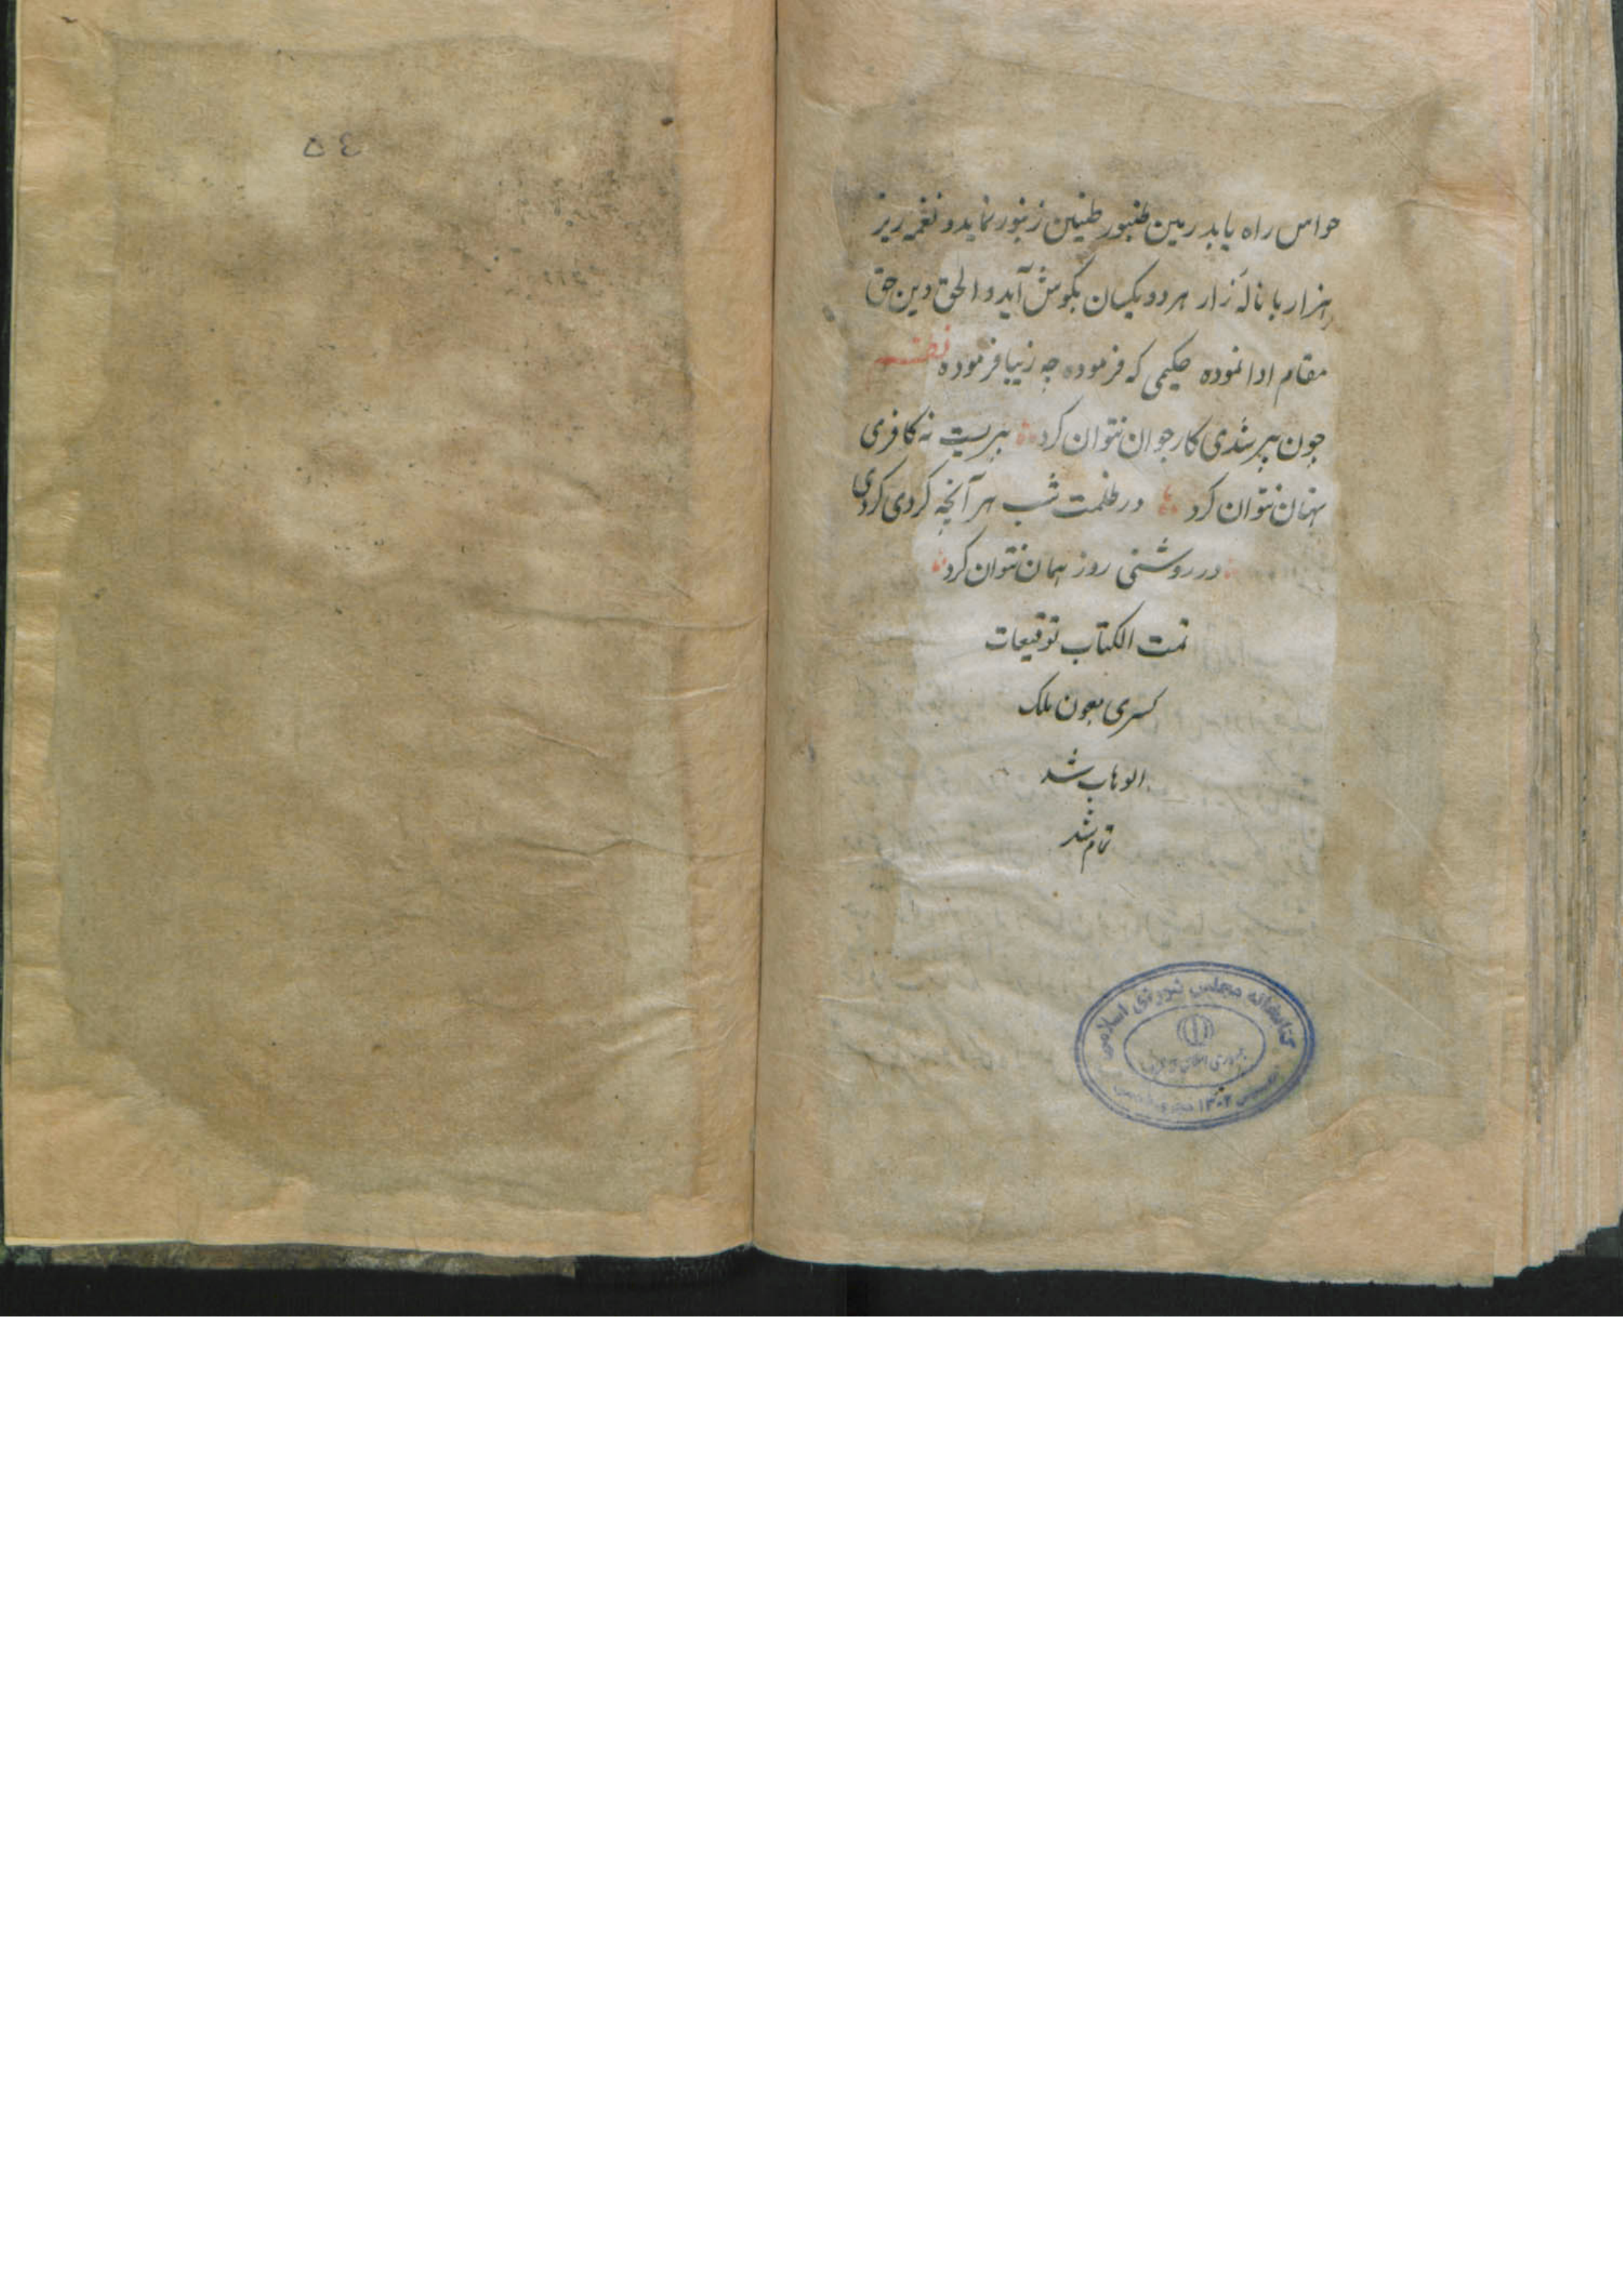 حواس راه یابد رمین طنبور طنین زنبور نماید و نغمه ریز
هزار با نالهٔ زار هر دو یکسان بگوش آید و الحق دین حق
مقام ادا نموده حکیمی که فرموده چه زیبا فرموده نظم
چون پیر شدی کار جوان نتوان کرد پیریست نه کافری
پنهان نتوان کرد در ظلمت شب هر آنچه کردی کردی
در روشنی روز همان نتوان کرد
تمت الکتاب توقیعات
کسری بعون ملک
الوهاب شد
تمام شد
کتابخانه مجلس شورای اسلامی
جمهوری اسلامی
۱۳۰۲
٥٤